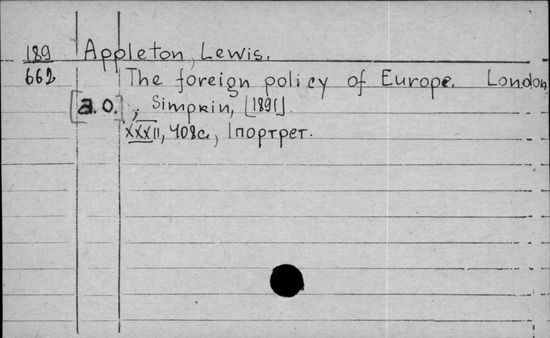 189 Appleton, Lewis.
662 The foreign policy of Europe. London
[a.o.], Simpkin, [1891].
XXXII, 408с., 1портрет.